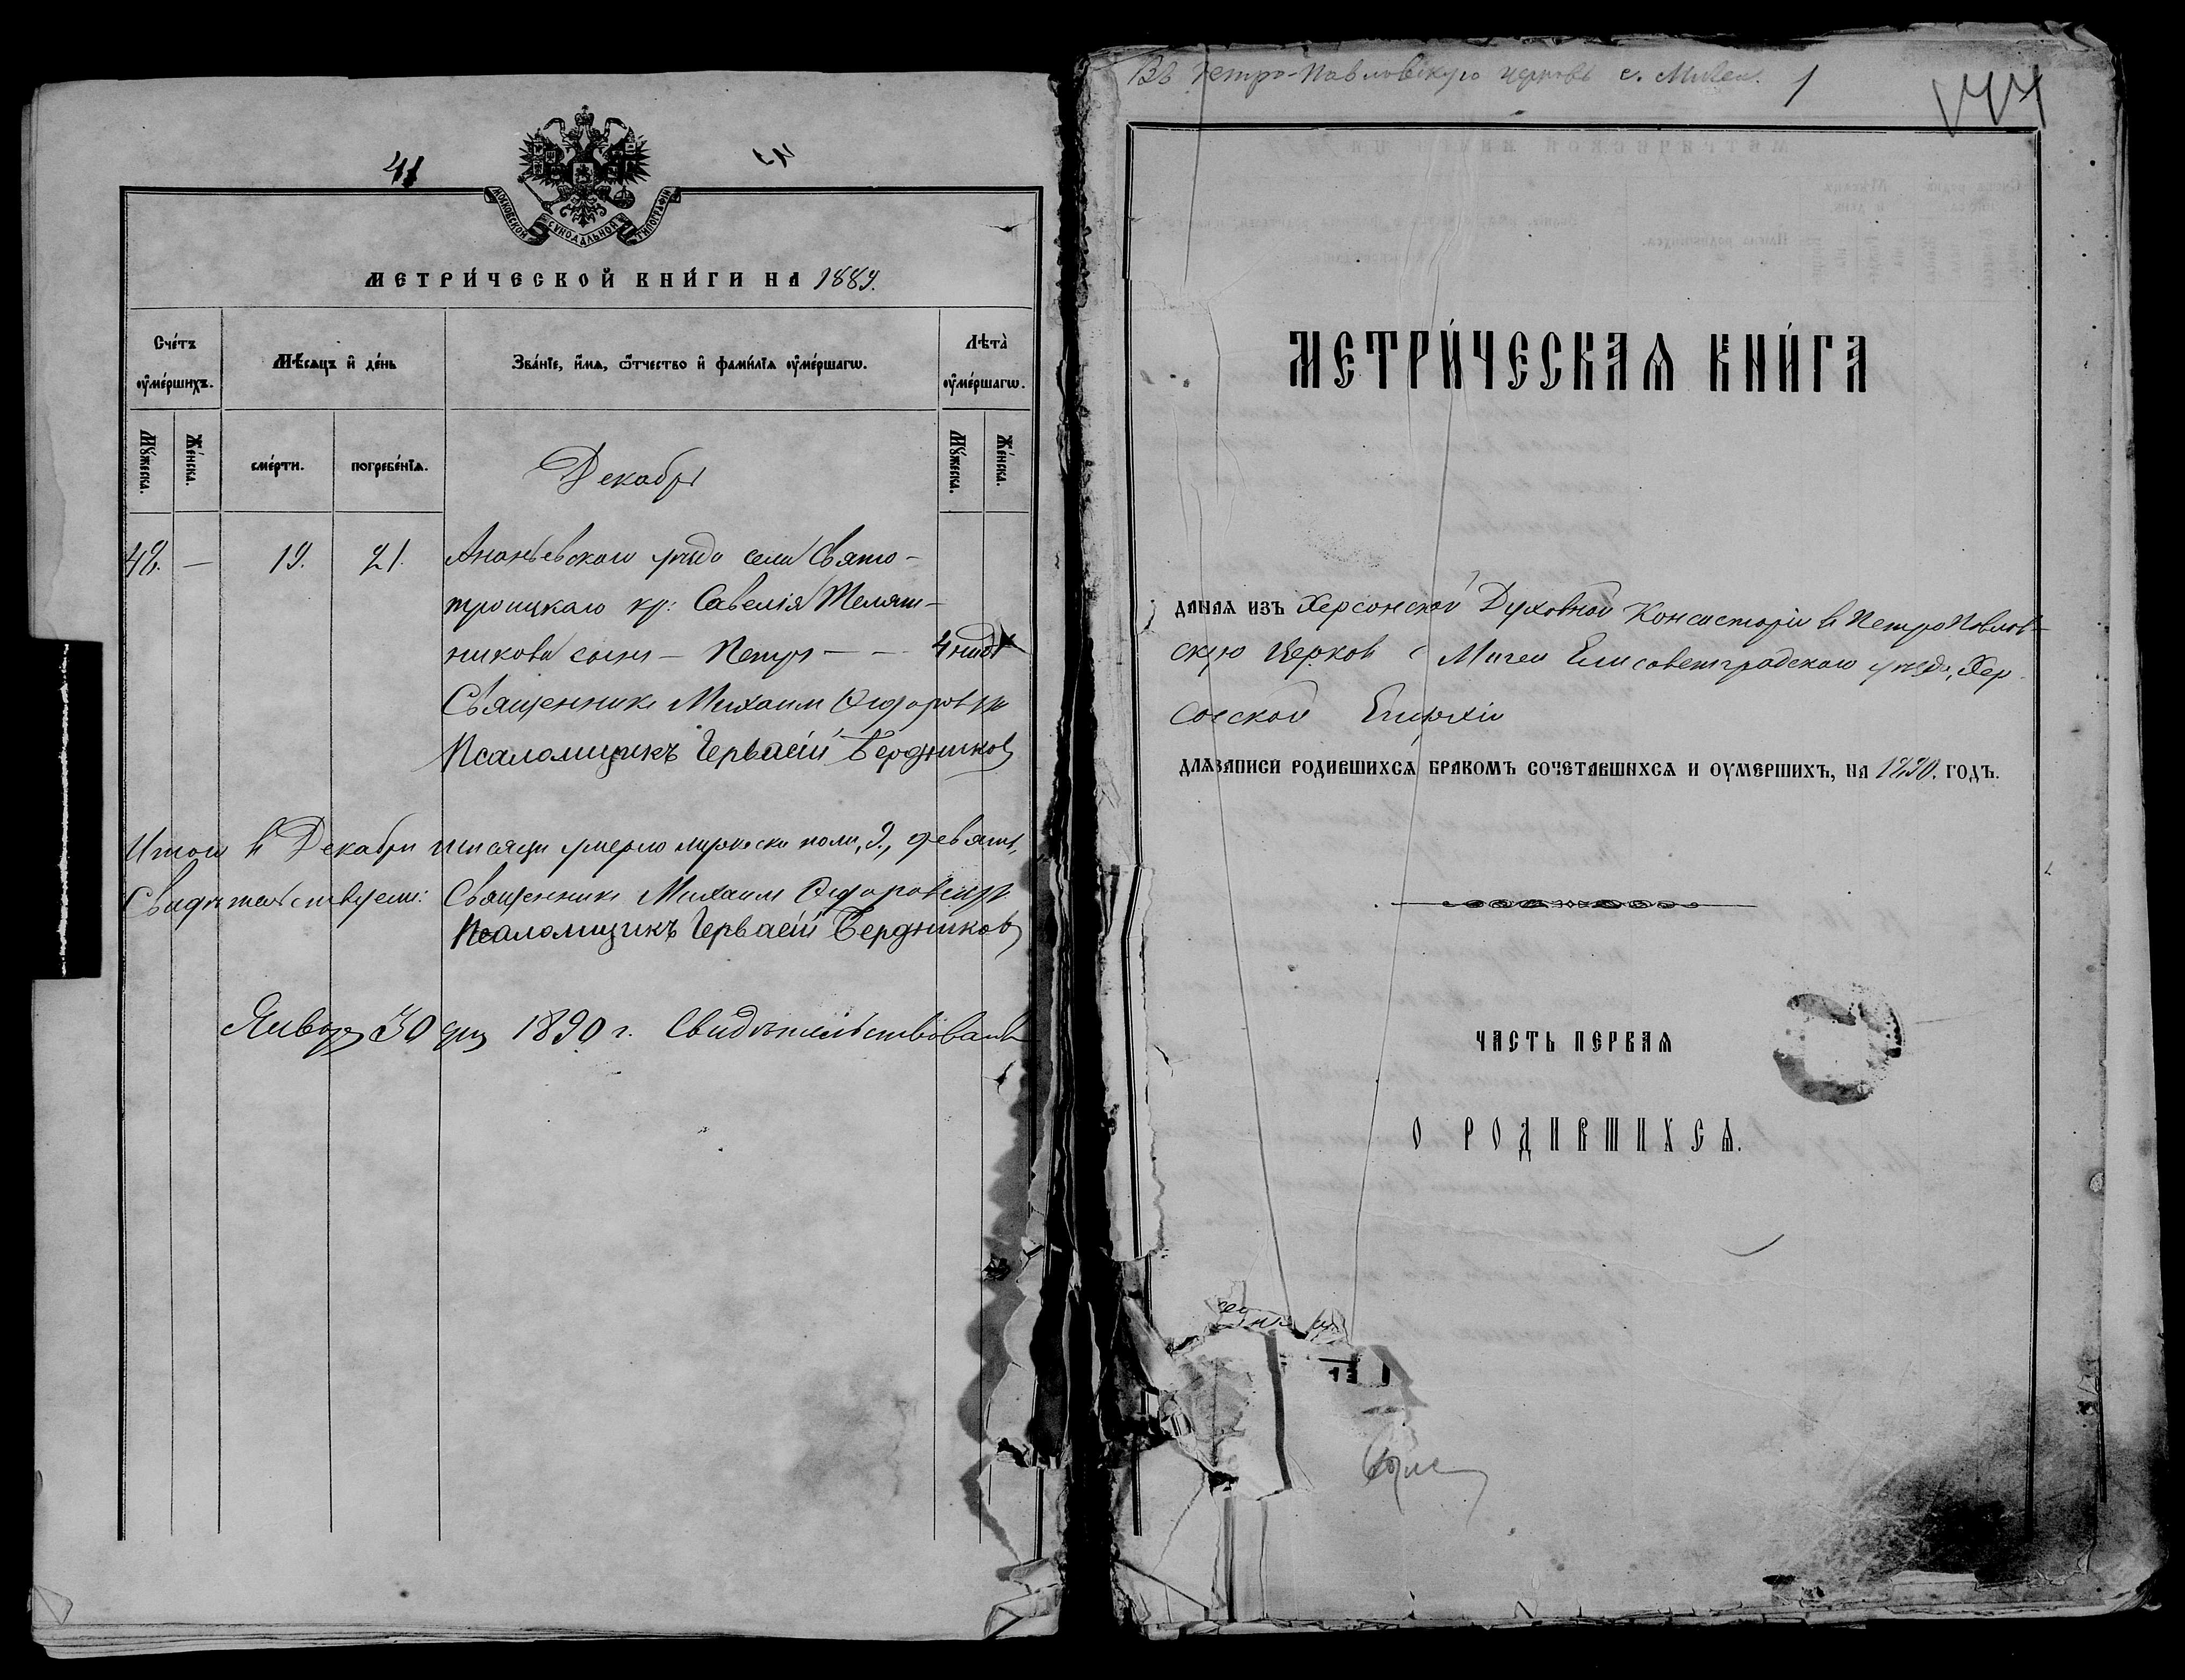 41
МОСКОВСКОЙ СѴНОДАЛЬНОЙ ТИПОГРАФІИ
МЕТРИ́ЧЕСКОЙ КНИ́ГИ НА 1889.
Сче́тъ оу҆ме́ршихъ.
Мѣ́сяцъ и҆ де́нь
Зва́нїе, и҆́мѧ, ѻ҆́тчество и҆ фами́лїѧ оу҆ме́ршагѡ.
Лѣта̀ оу҆ме́ршагѡ.
Мꙋ́жеска.
Же́нска.
сме́рти.
погребе́нїѧ.
Декабрь
Мꙋ́жеска.
Же́нска.
42. — 19. 21. Ананьевскаго уѣзда села Свято-
троицкаго кр: Савелія Теляш-
никова сынъ — Петръ — — 4 нид
Священникъ Михаилъ Ѳедоровичъ
Псаломщикъ Герваcій Бердников
Итого въ Декабрѣ мѣсяцѣ умерло мужеска пола, 9., девять,
Свидѣтельствуемъ: Священникъ Михаилъ
Псаломщикъ Герваcій Бердников
Января 30 дня 1890 г. Свидѣтельствовалъ
Въ Петро-Павловскую церковь с. Мигеи. 1
МЕТРИ́ЧЕСКАѦ КНИ́ГА
ДАНАѦ ИЗЪ Херсонской Духовной Консисторіи въ ПетроПавлов-
скую Церковь с Мигеи Елисаветградскаго уѣзда, Хер
сонской Епархіи
ДЛѦ ЗАПИСИ РОДИВШИХСѦ БРАКОМЪ СОЧЕТАВШИХСѦ И ОУМЕРШИХЪ, НА 1890. ГОДЪ.
ЧАСТЬ ПЕРВАѦ
О РОДИВШИХСѦ.